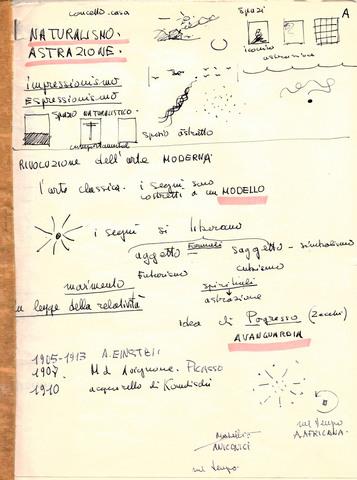 concetto-casa
spazi
A
NATURALISMO.
ASTRAZIONE.
iconico
astrazione
impressionismo
Espressionismo
SPAZIO NATURALISTICO
spazio astratto
RIVOLUZIONE dell'arte MODERNA
l'arte classica. i segni sono
costretti a un MODELLO
i segni si liberano
Formali
oggetto soggetto - simbolismo
Futurismo cubismo
movimento spirituali
la legge della relatività astrazione
idea di Progresso (Zecchi)
AVANGUARDIA
1905-1913 A. EINSTEIN
1907 M.d Avignone. PICASSO
1910 acquerello di Kandiski
nel tempo
A.AFRICANA.
ANICONICI
nel tempo